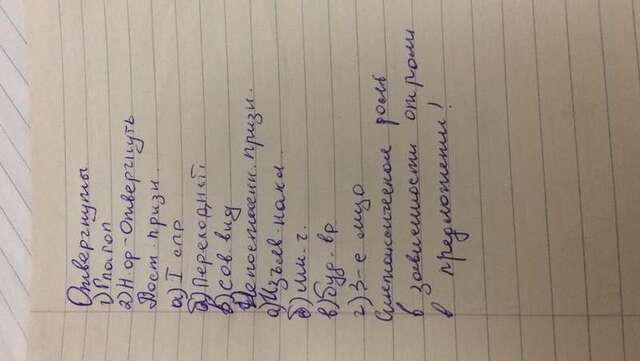 Отвергнуты
1) Глагол
2) Н.ф-отвергнуть
Пост. призн.
а) I спр
б) Переходный
в) Сов. вид
Непостоянн. призн.
а) Изъяв. накл.
б) мн. ч.
в) Буд. вр
г) 3-е лицо
Синтаксическая роль
в зависимости от роли
в предложении!